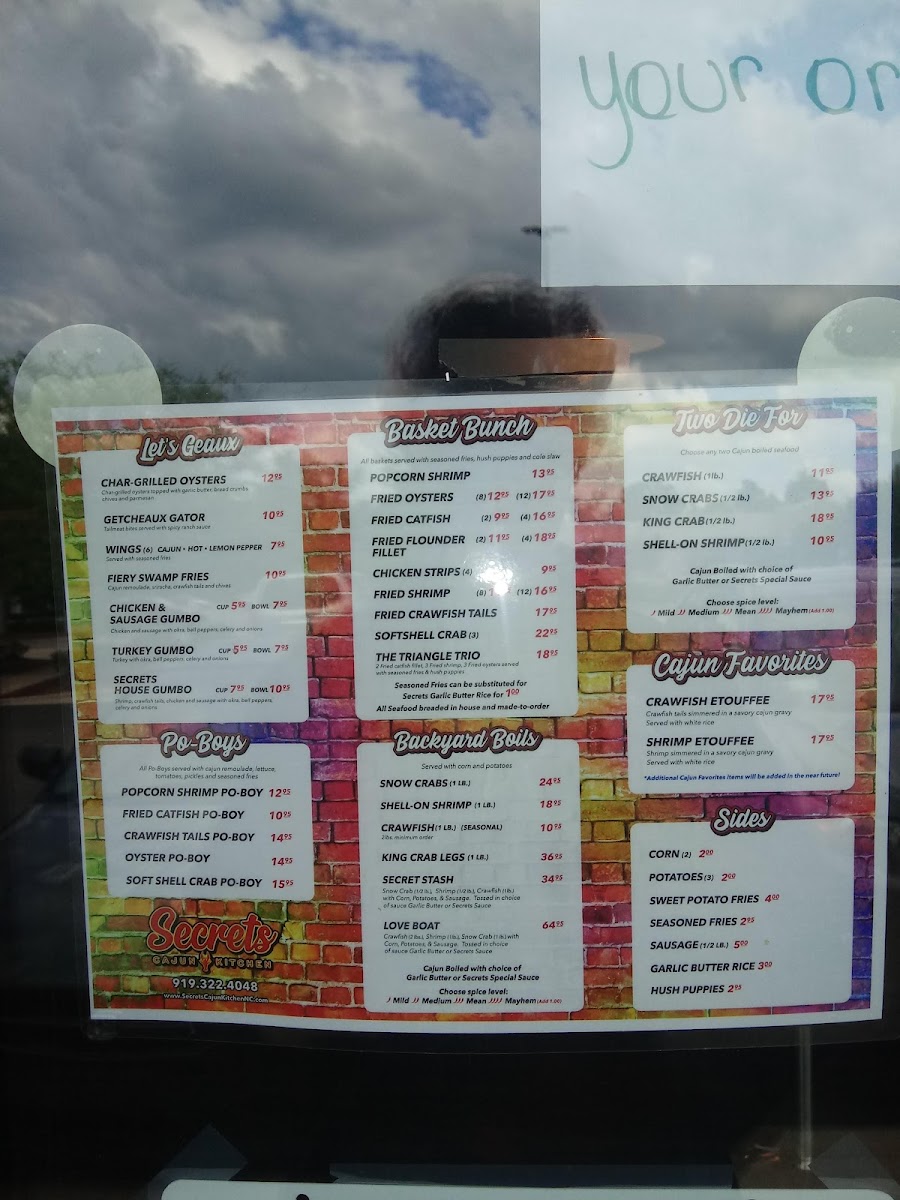 your or
Let's Geaux
CHAR-GRILLED OYSTERS 12⁹⁵
Char-grilled oysters topped with garlic butter, bread crumbs,
chives and parmesan
GETCHEAUX GATOR 10⁹⁵
Tailmeat bites served with spicy ranch sauce
WINGS (6) CAJUN • HOT • LEMON PEPPER 7⁹⁵
Served with seasoned fries
FIERY SWAMP FRIES 10⁹⁵
Cajun remoulade, sriracha, crawfish tails and chives
CHICKEN &
SAUSAGE GUMBO CUP 5⁹⁵ BOWL 7⁹⁵
Chicken and sausage with okra, bell peppers, celery and onions
TURKEY GUMBO CUP 5⁹⁵ BOWL 7⁹⁵
Turkey with okra, bell peppers, celery and onions
SECRETS
HOUSE GUMBO CUP 7⁹⁵ BOWL 10⁹⁵
Shrimp, crawfish tails, chicken and sausage with okra, bell peppers,
celery and onions
Po-Boys
All Po-Boys served with cajun remoulade, lettuce,
tomatoes, pickles and seasoned fries
POPCORN SHRIMP PO-BOY 12⁹⁵
FRIED CATFISH PO-BOY 10⁹⁵
CRAWFISH TAILS PO-BOY 14⁹⁵
OYSTER PO-BOY 14⁹⁵
SOFT SHELL CRAB PO-BOY 15⁹⁵
Secrets
CAJUN KITCHEN
919.322.4048
www.SecretsCajunKitchenNC.com
Basket Bunch
All baskets served with seasoned fries, hush puppies and cole slaw
POPCORN SHRIMP 13⁹⁵
FRIED OYSTERS (8) 12⁹⁵ (12) 17⁹⁵
FRIED CATFISH (2) 9⁹⁵ (4) 16⁹⁵
FRIED FLOUNDER (2) 11⁹⁵ (4) 18⁹⁵
FILLET
CHICKEN STRIPS (4) 9⁹⁵
FRIED SHRIMP (8) (12) 16⁹⁵
FRIED CRAWFISH TAILS 17⁹⁵
SOFTSHELL CRAB (3) 22⁹⁵
THE TRIANGLE TRIO 18⁹⁵
2 Fried catfish fillet, 3 Fried shrimp, 3 Fried oysters served
with seasoned fries & hush puppies
Seasoned Fries can be substituted for
Secrets Garlic Butter Rice for 1⁰⁰
All Seafood breaded in house and made-to-order
Backyard Boils
Served with corn and potatoes
SNOW CRABS (1 LB.) 24⁹⁵
SHELL-ON SHRIMP (1 LB.) 18⁹⁵
CRAWFISH (1 LB.) (SEASONAL) 10⁹⁵
2lbs. minimum order
KING CRAB LEGS (1 LB.) 36⁹⁵
SECRET STASH 34⁹⁵
Snow Crab (1/2 lb.), Shrimp (1/2 lb.), Crawfish (1lb.)
with Corn, Potatoes, & Sausage. Tossed in choice
of sauce Garlic Butter or Secrets Sauce
LOVE BOAT 64⁹⁵
Crawfish (2 lbs.), Shrimp (1lb.), Snow Crab (1 lb.) with
Corn, Potatoes, & Sausage. Tossed in choice
of sauce Garlic Butter or Secrets Sauce
Cajun Boiled with choice of
Garlic Butter or Secrets Special Sauce
Choose spice level:
Mild Medium Mean Mayhem (Add 1.00)
Two Die For
Choose any two Cajun boiled seafood
CRAWFISH (1lb.) 11⁹⁵
SNOW CRABS (1/2 lb.) 13⁹⁵
KING CRAB (1/2 lb.) 18⁹⁵
SHELL-ON SHRIMP (1/2 lb.) 10⁹⁵
Cajun Boiled with choice of
Garlic Butter or Secrets Special Sauce
Choose spice level:
Mild Medium Mean Mayhem (Add 1.00)
Cajun Favorites
CRAWFISH ETOUFFEE 17⁹⁵
Crawfish tails simmered in a savory cajun gravy
Served with white rice
SHRIMP ETOUFFEE 17⁹⁵
Shrimp simmered in a savory cajun gravy
Served with white rice
*Additional Cajun Favorites items will be added in the near future!
Sides
CORN (2) 2⁰⁰
POTATOES (3) 2⁰⁰
SWEET POTATO FRIES 4⁰⁰
SEASONED FRIES 2⁹⁵
SAUSAGE (1/2 LB.) 5⁰⁰
GARLIC BUTTER RICE 3⁰⁰
HUSH PUPPIES 2⁹⁵